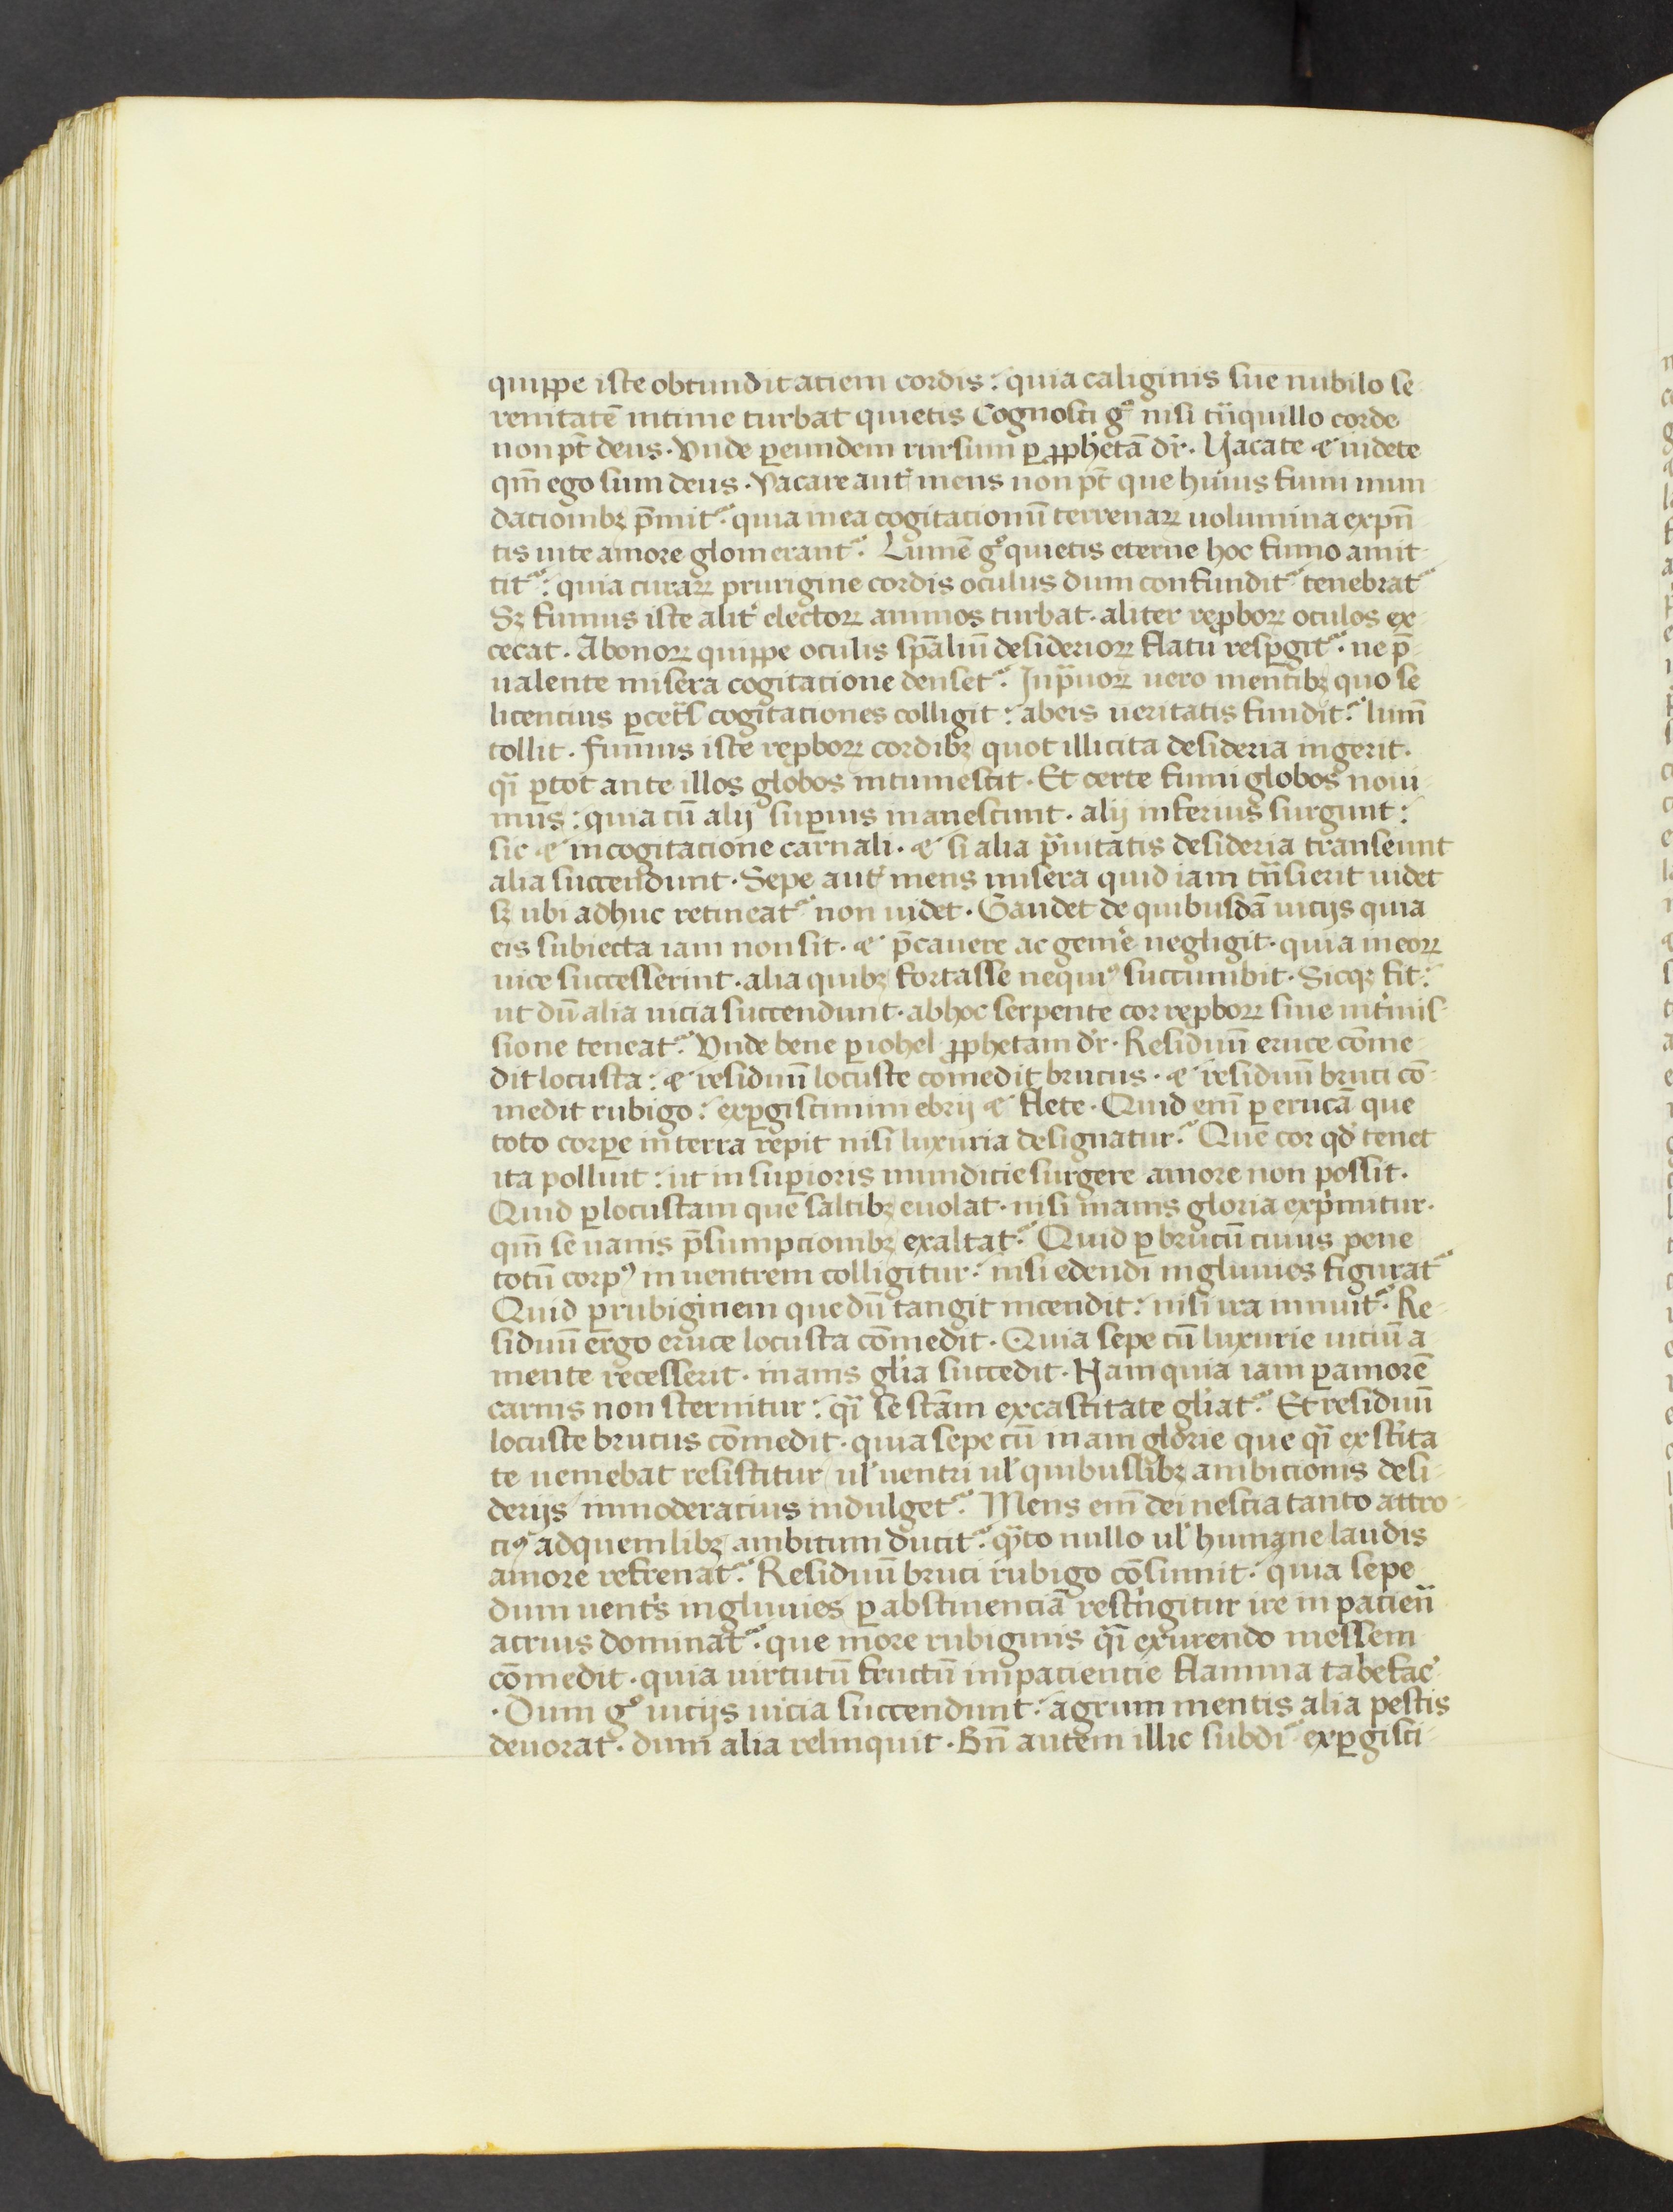 quippe iste obtundit aciem cordis: quia caliginis sue nubilo se-
renitatē intime turbat quietis Cognosci gͦ nisi tͣnquillo corde
non pt̄ deus. Vnde ꝑ eundem rursum ꝑ ꝓphetā dr̄. Uacate ⁊ uidete
qm̄ ego sum deus. Vacare aut̄ mens non pt̄ que huius fumi inun
dacionibꝫ p̄mit᷑: quia in ea cogitacionū terrenaꝝ uolumina ex pn̄-
tis uite amore glomerant᷑. Lumē gͦ quietis eterne hoc fumo amit-
tit᷑: quia curaꝝ prurigine cordis oculus dum confundit᷑ tenebrat᷑
Sꝫ fumus iste alit̄ electoꝝ animos turbat. aliter reꝓboꝝ oculos ex-
cecat. A bonoꝝ quippe oculis sp̄aliū desiderioꝝ flatu resꝑgit᷑. ne p̄-
ualente misera cogitacione denset᷑. In pͣuoꝝ uero mentibꝫ quo se
licencius ꝑ cet̄s cogitaciones colligit: ab eis ueritatis fundit᷑ lum̄
tollit. Fumus iste reꝓboꝝ cordibꝫ quot illicita desideria ingerit.
qͣi ꝑ tot ante illos globos intumescit. Et certe fumi globos noui-
mus: quia cū alij suꝑius inanescunt. alij inferius surgunt:
sic ⁊ in cogitacione carnali. ⁊ si alia pͣuitatis desideria transeunt
alia succendunt. Sepe aut̄ mens misera quid iam tͣnsierit uidet
sꝫ ubi adhuc retineat᷑ non uidet. Gaudet de quibusdā uicijs quia
eis subiecta iam non sit. ⁊ p̄cauere ac gem̄e negligit. quia in eoꝝ
uice successerint. alia quibꝫ fortasse nequiꝰ succumbit. Sicqꝫ fit:
ut dū alia uicia succendunt. ab hoc serpente cor reꝓboꝝ sine int̄mis-
sione teneat᷑. Vnde bene ꝑ iohel ꝓphetam dr̄. Residuū eruce come-
dit locusta: ⁊ residuū locuste comedit brucus. ⁊ residuū bruci cō-
medit rubigo: exꝑgiscimini ebrij ⁊ flete. Quid em̄ ꝑ erucā que
toto corꝑe in terra repit nisi luxuria designatur᷑. Que cor qd̄ tenet
ita polluit: ut in suꝑioris mundicie surgere amore non possit.
Quid ꝑ locustam que saltibꝫ euolat. nisi inanis gloria exprimitur.
qm̄ se uanis p̄sumpcionibꝫ exaltat᷑. Quid ꝑ brucū cuius pene
totū corpꝰ in uentrem colligitur: nisi edendi ingluuies figurat᷑
Quid ꝑ rubiginem que dū tangit incendit: nisi ira innuit᷑. Re-
siduū ergo eruce locusta cōmedit. Quia sepe cū luxurie uiciū a
mente recesserit. inanis gl̄ia succedit. Nam quia iam ꝑ amorē
carnis non sternitur: qͣi se scām ex castitate gl̄iat᷑. Et residuū
locuste brucus cōmedit. quia sepe cū inani glorie que qͣi ex sc̄ita
te ueniebat resistitur ul̄ uentri ul̄ quibuslibꝫ ambicionis desi-
derijs inmoderacius indulget᷑. Mens em̄ dei nescia tanto attro-
ciꝰ ad quemlibꝫ ambitum ducit᷑. qͣto nullo ul̄ humane laudis
amore refrenat᷑. Residuū bruci rubigo cōsumit. quia sepe
dum uent̄s ingluuies ꝑ abstinenciā rest̄ngitur ire inpacien̄
acrius dominat᷑. que more rubiginis qͣi exurendo messem
cōmedit. quia uirtutū fructū impaciencie flamma tabefac̄
. Dum gͦ uicijs uicia succendunt: agrum mentis alia pestis
deuorat. dum alia relinquit. Bn̄ autem illic subdit᷑ exꝑgisci-